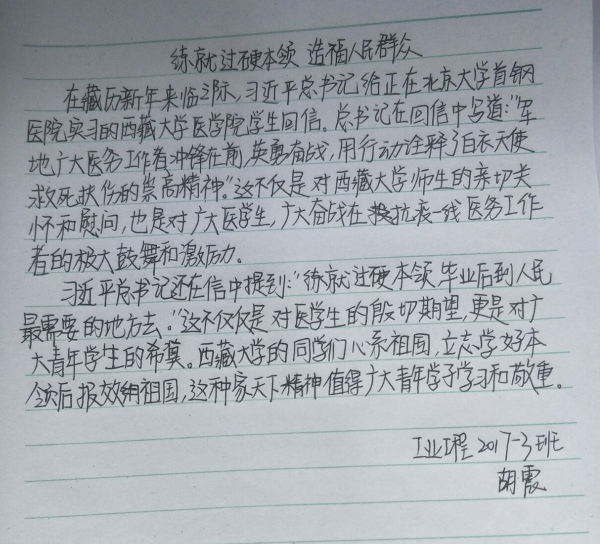 练就过硬本领 造福人民群众
在藏历新年来临之际,习近平总书记给正在北京大学首钢
医院实习的西藏大学医学院学生回信。总书记在回信中写道:"军
地广大医务工作者冲锋在前,英勇奋战,用行动诠释了白衣天使
救死扶伤的崇高精神。"这不仅是对西藏大学师生的亲切关
怀和慰问,也是对广大医学生,广大奋战在抗疫一线医务工作
者的极大鼓舞和激励力。
习近平总书记还在信中提到:"练就过硬本领,毕业后到人民
最需要的地方去。"这不仅仅是对医学生的殷切期望,更是对广
大青年学生的希冀。西藏大学的同学们心系祖国,立志学好本
领后报效祖国,这种家天下精神值得广大青年学子学习和敬重。
工业工程2017-3班
胡震